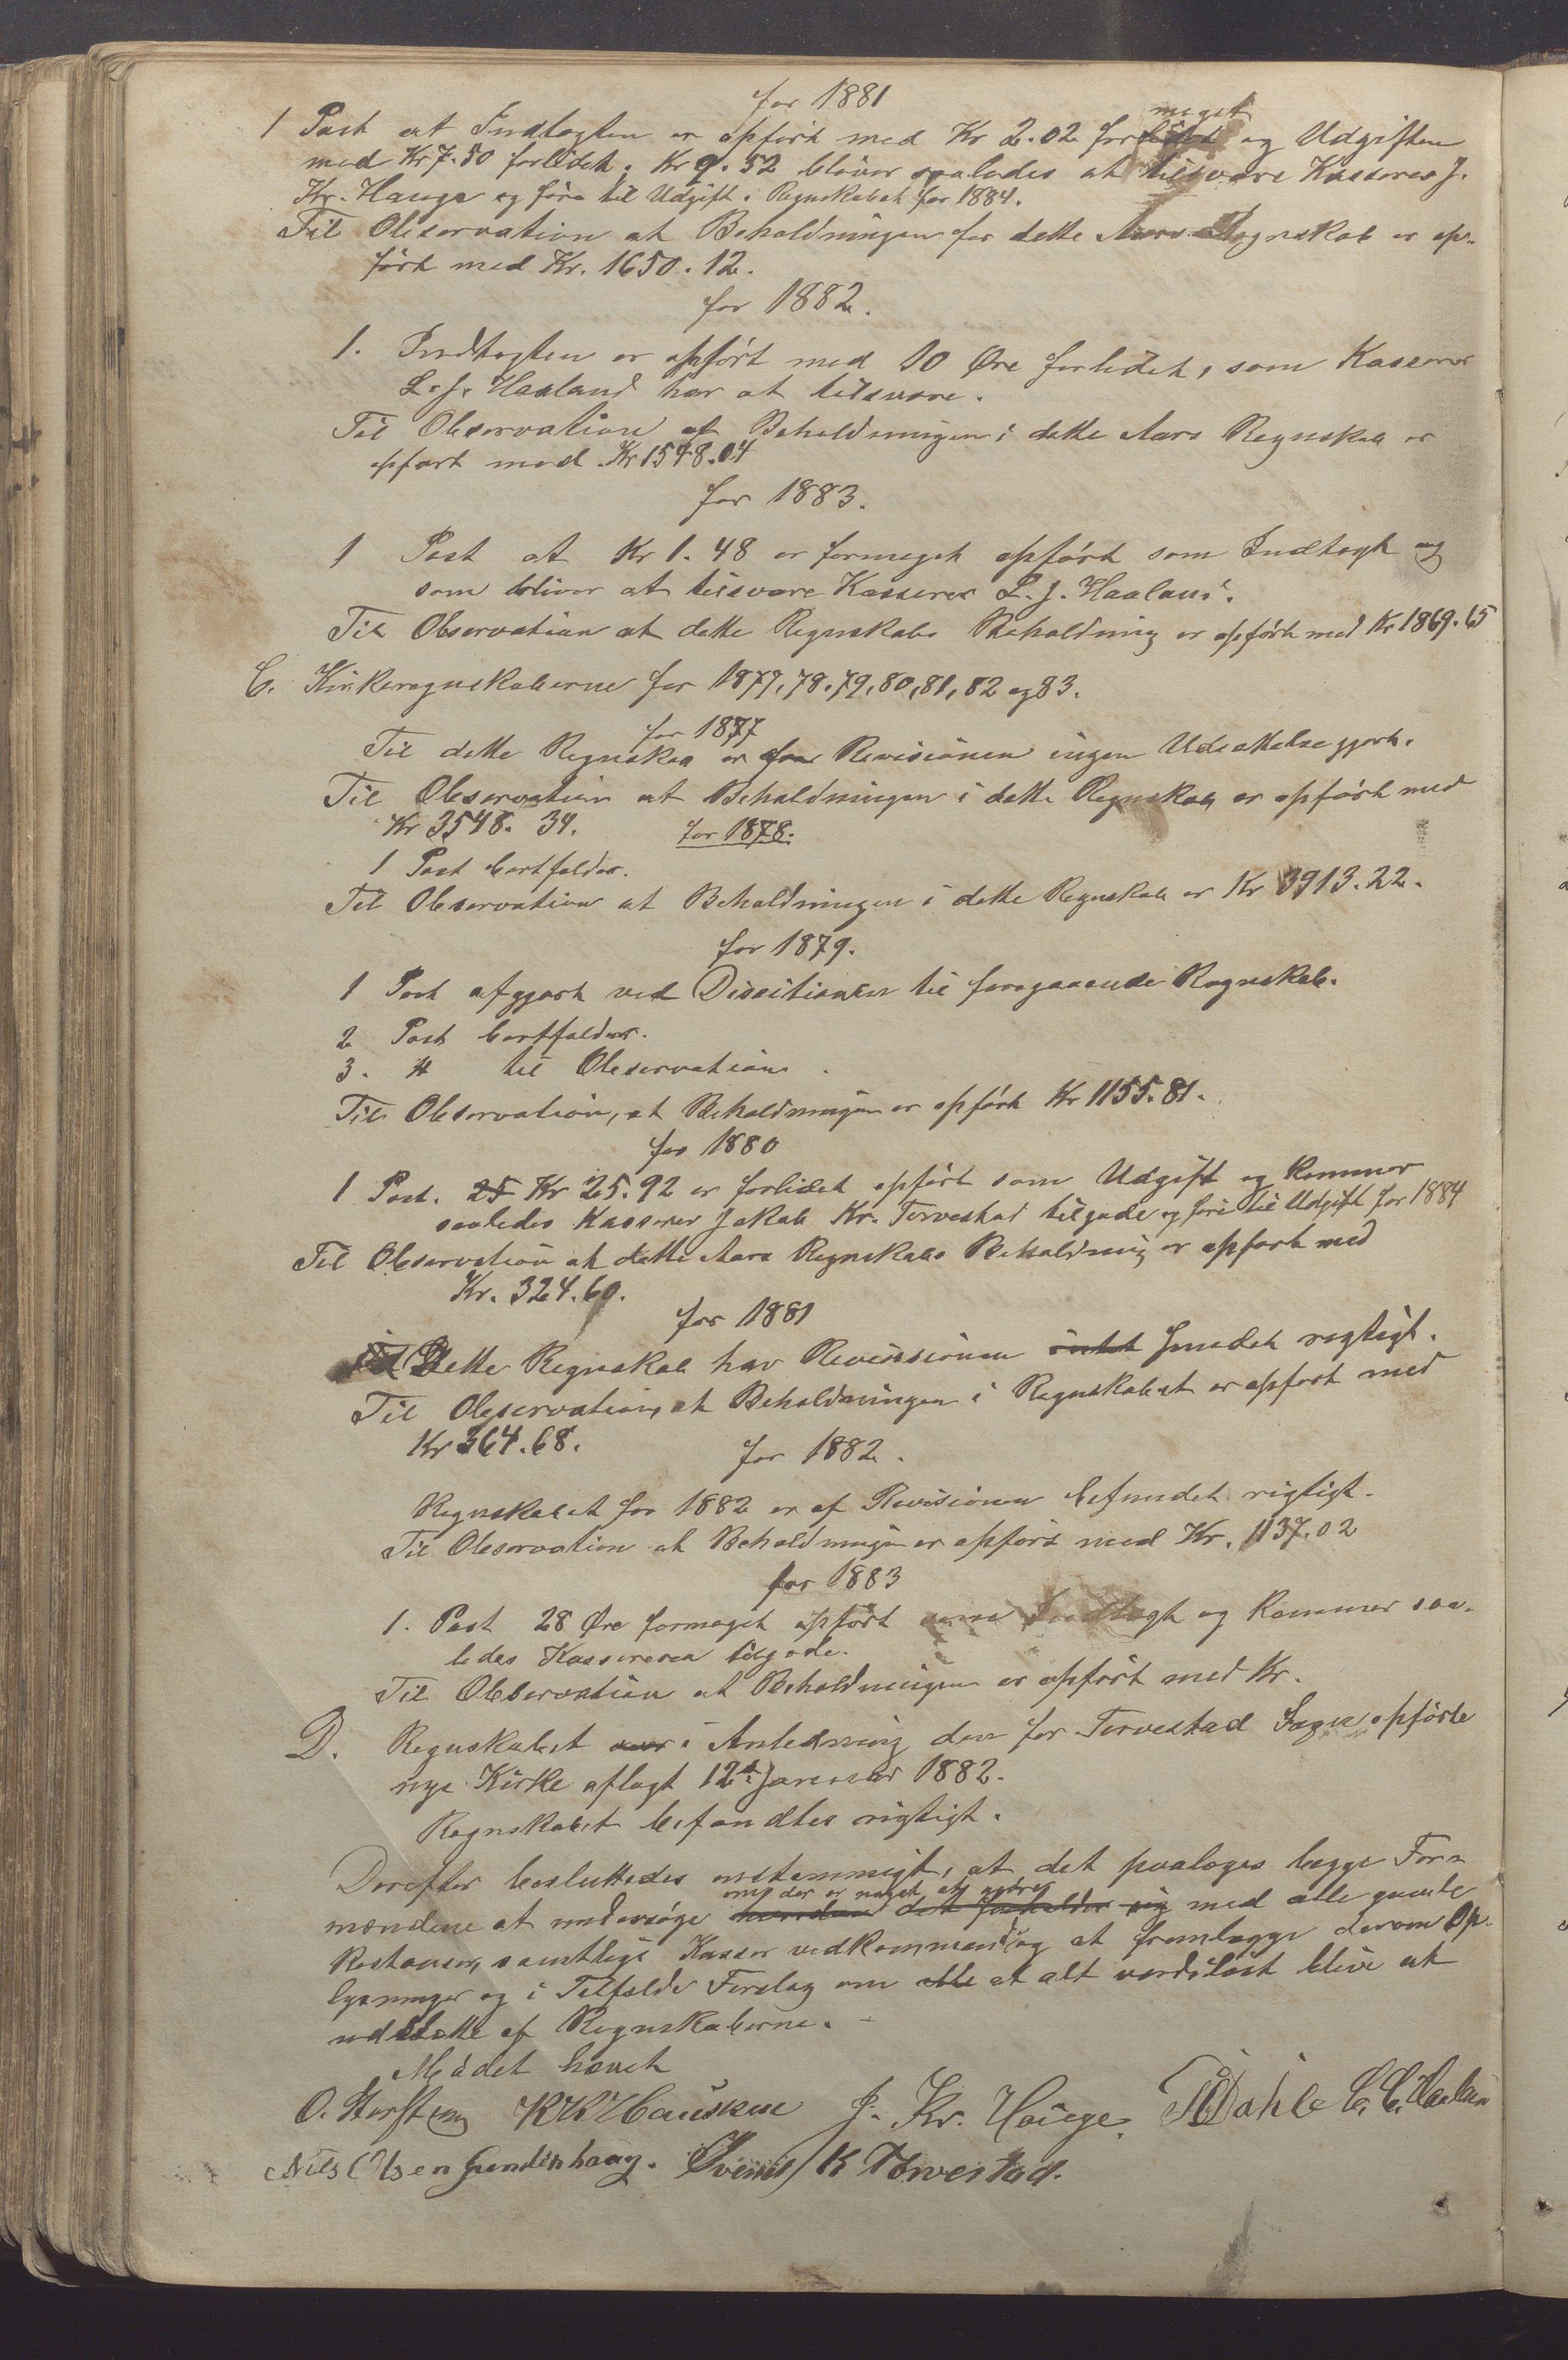 for 1881
1 Post at Indtægten er opført med Kr 2.02 formeget og Udgiften
med Kr 7.50 forlidet. Kr 9.52 bliver saaledes at tilsvare Kasserer J.
Kr. Hauge og føre til Udgift i Regnskabet for 1884.
Til Observation at Beholdningen for dette Aars Regnskab er op-
ført med Kr. 1650.12.
for 1882.
1. Indtægten er opført med 10 Øre forlidet, som Kasserer
L. J. Haaland har at tilsvare.
Til Observation at Beholdningen i dette Aars Regnskab er
opført med Kr 1548.04
for 1883.
1 Post at Kr 1.48 er formeget opført som Indtægt og
som bliver at tilsvare Kasserer L. J. Haaland.
Til Observation at dette Regnskabs Beholdning er opført med Kr 1869.65
C. Kirkeregnskaberne for 1877, 78, 79, 80, 81, 82 og 83.
for 1877
Til dette Regnskab er Revisionen ingen Udsættelse gjort.
Til Observation at Beholdningen i dette Regnskab er opført med
Kr 3548.34. for 1878.
1 Post bortfalder.
Til Observation at Beholdningen i dette Regnskab er Kr 3913.22.
for 1879.
1 Post afgjort ved Decisionen til foregaaende Regnskab.
2 Post bortfalder.
3. " til Observation.
Til Observation, at Beholdningen er opført Kr 1155.81.
for 1880
1 Post. 25 Kr 25.92 er forlidet opført som Udgift og kommer
saaledes Kasserer Jakob Kr. Torvestad tilgode og føre til Udgift for 1884
Til Observation at dette Aars Regnskabs Beholdning er opført med
Kr. 324.60.
for 1881
Dette Regnskab har Revisionen intet fundet rigtigt.
Til Observation, at Beholdningen i Regnskabet er opført med
Kr 364.68. for 1882.
Regnskabet for 1882 er af Revisionen befundet rigtigt.
Til Observation at Beholdningen er opført med Kr. 1137.02
for 1883
1. Post 28 Øre formeget opført som Indtægt og kommer saa-
ledes Kassereren tilgode.
Til Observation at Beholdningen er opført med Kr.
D. Regnskabet over i Anledning den for Torvestad Sogn opførte
nye Kirke aflagt 12te Januar 1882.
Regnskabet befandtes rigtigt.
Derefter besluttedes enstemmigt, at det paalægges begge For-
om der er noget at gjøre
mændene at undersøge hvordan det forholder sig med alle gamle
Restanser, samtlige Kasser vedkommende og at fremlægge derom Op-
lysninger og i Tilfælde Forslag om alle at alt værdiløst blive at
udslette af Regnskaberne. -
Mødet hævet
O. Storsteng K K Hausken J. Kr. Hauge. Dahle C. C. Haaland
Nils Olsen Gundenhaug. Svend K Torvestad.